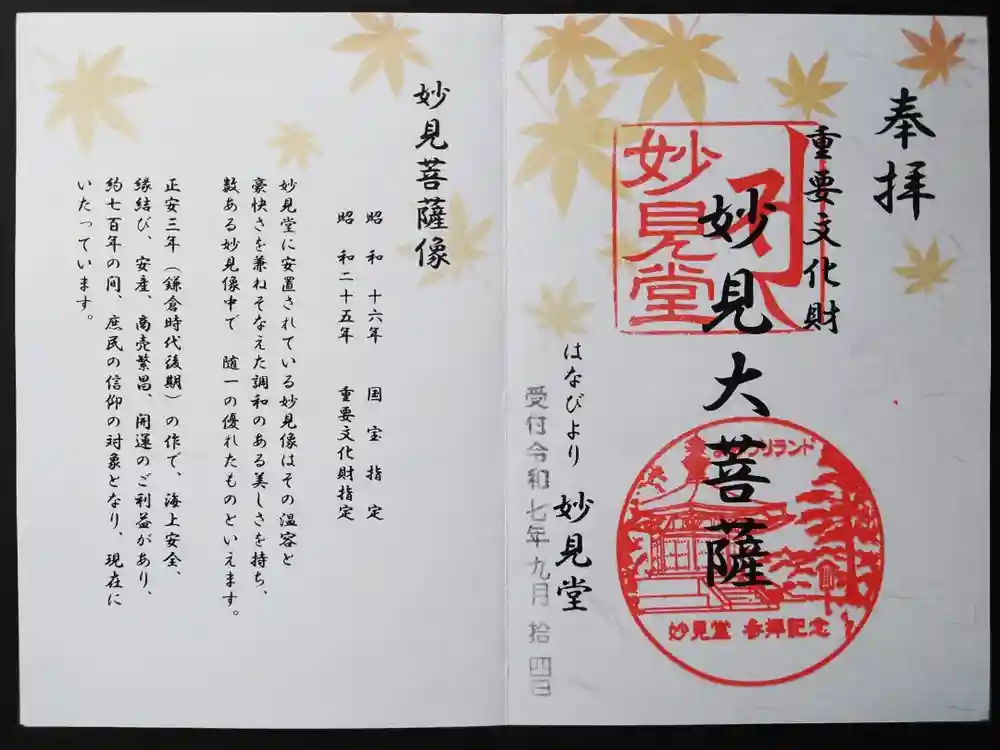 奉拝
重要文化財
妙見大菩薩
妙見堂
妙見堂 参拝記念
はなびより 妙見堂
受付令和七年九月拾四日
妙見菩薩像
昭和十六年 国宝指定
昭和二十五年 重要文化財指定
妙見堂に安置されている妙見像はその温容と
豪快さを兼ねそなえた調和のある美しさを持ち、
数ある妙見像中で 随一の優れたものといえます。
正安三年（鎌倉時代後期）の作で、海上安全、
縁結び、安産、商売繁昌、開運のご利益があり、
約七百年の間、庶民の信仰の対象となり、現在に
いたっています。